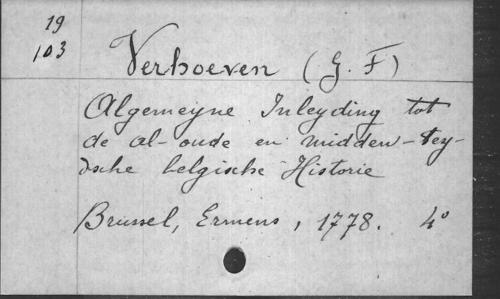 19
103
Verhoeven (G. F)
Algemeyne Inleyding tot
de al-oude en midden-tey-
dsche belgische Historie
Brussel, Ermens, 1778. 4°